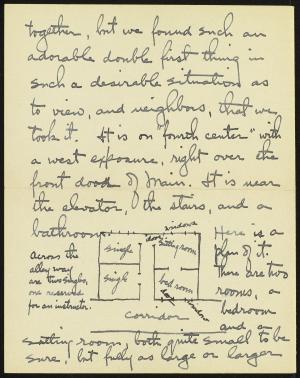 together, but we found such an
adorable double first thing in
such a desirable situation as
to view, and neighbors, that we
took it. It is on "fourth center" with
a west exposure, right over the
front door of Main. It is near
the elevator, the stairs, and a
bathroom.
windows
door
single
sitting room
single
bed room
door
window
corridor
Across the
alley way
are two singles,
one reserved
for an instructor.
Here is a
plan of it.
There are two
rooms, a
bedroom
and a
sitting room, both quite small to be
sure, but fully as large or larger